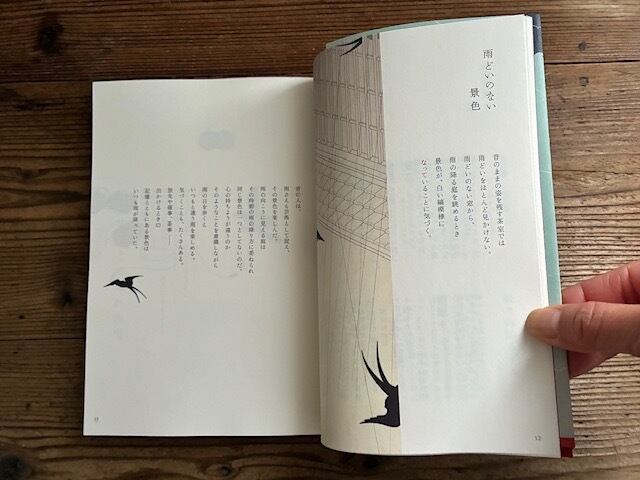 雨どいのない
景色
昔のままの姿を残す茶室では
雨どいをほとんど見かけない。
雨どいのない窓から、
雨の降る庭を眺めるとき
景色が、白い縞模様に
なっていることに気づく。
12
昔の人は、
雨さえも芸術として捉え、
その景色を楽しんだ。
雨の向こうに見える庭は
その時間の雨の降り方に委ねられ
同じ景色は一つとしてないのだ。
心の持ちようが違うのか
そのようなことを意識しながら
雨の日を歩くと
いつもと違う雨を楽しめる。
気づくことも、たくさんある。
旅先や催事、茶事――。
出かけるときの
記憶とともにある景色は
いつも雨が降っていた。
13